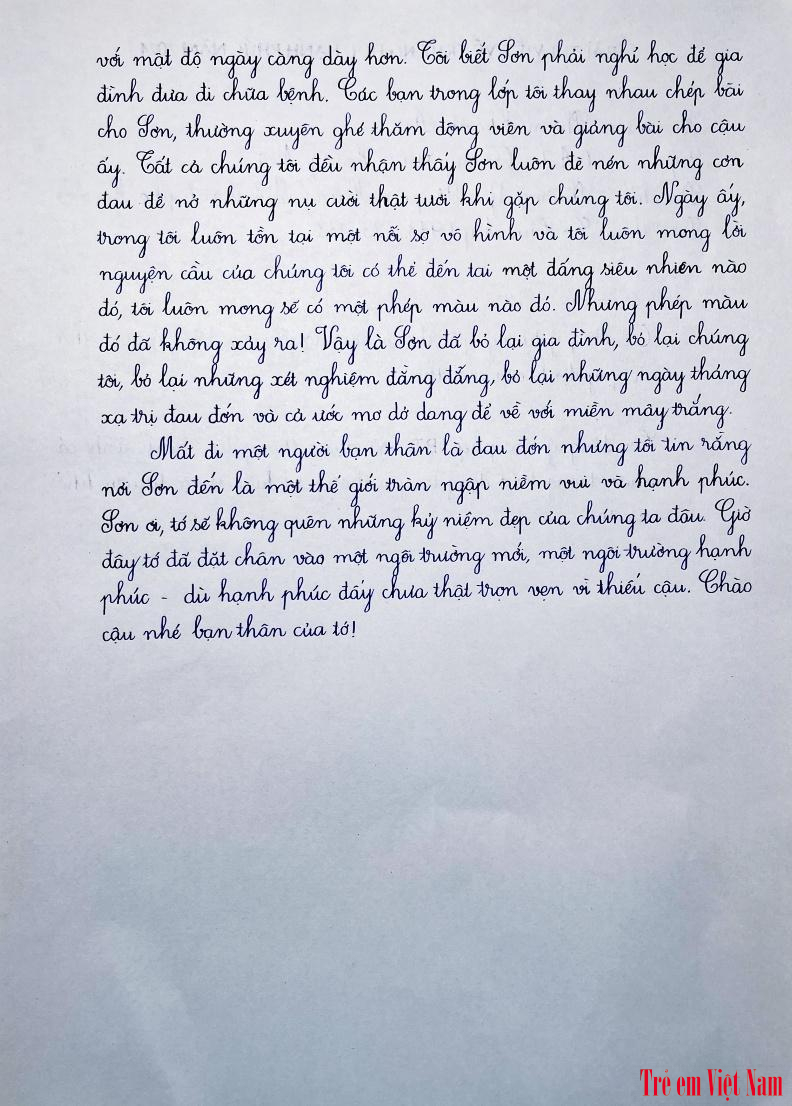 với mật độ ngày càng dày hơn. Tôi biết Sơn phải nghỉ học để gia
đình đưa đi chữa bệnh. Các bạn trong lớp tôi thay nhau chép bài
cho Sơn, thường xuyên ghé thăm động viên và giảng bài cho cậu
ấy. Tất cả chúng tôi đều nhận thấy Sơn luôn đè nén những cơn
đau để nở những nụ cười thật tươi khi gặp chúng tôi. Ngày ấy,
trong tôi luôn tồn tại một nỗi sợ vô hình và tôi luôn mong lời
nguyện cầu của chúng tôi có thể đến tai một đấng siêu nhiên nào
đó, tôi luôn mong sẽ có một phép màu nào đó. Nhưng phép màu
đó đã không xảy ra! Vậy là Sơn đã bỏ lại gia đình, bỏ lại chúng
tôi, bỏ lại những xét nghiệm đằng đẵng, bỏ lại những ngày tháng
xạ trị đau đớn và cả ước mơ dở dang để về với miền mây trắng.
Mất đi một người bạn thân là đau đớn nhưng tôi tin rằng
nơi Sơn đến là một thế giới tràn ngập niềm vui và hạnh phúc.
Sơn ơi, tớ sẽ không quên những kỷ niệm đẹp của chúng ta đâu. Giờ
đây tớ đã đặt chân vào một ngôi trường mới, một ngôi trường hạnh
phúc - dù hạnh phúc đấy chưa thật trọn vẹn vì thiếu cậu. Chào
cậu nhé bạn thân của tớ!
Trẻ em Việt Nam